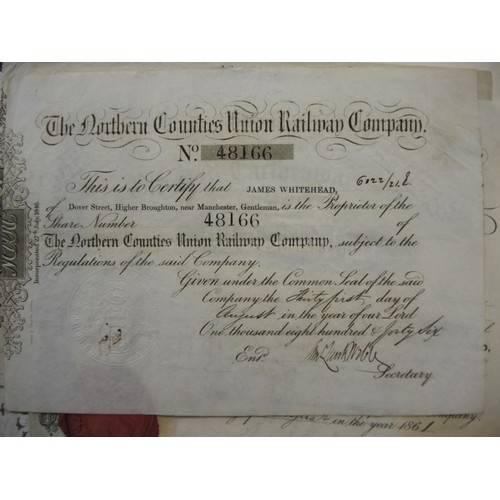 The Northern Counties Union Railway Company.
No. 48166
This is to Certify that JAMES WHITEHEAD,
of Dover Street, Higher Broughton, near Manchester, Gentleman, is the Proprietor of the
Share Number 48166 of
The Northern Counties Union Railway Company, subject to the
Regulations of the said Company.
Given under the Common Seal of the said
Company the Thirty first day of
August in the year of our Lord
One thousand eight hundred & forty six
Entd.
Secretary
Incorporated 27th July 1846.
in the year 1861